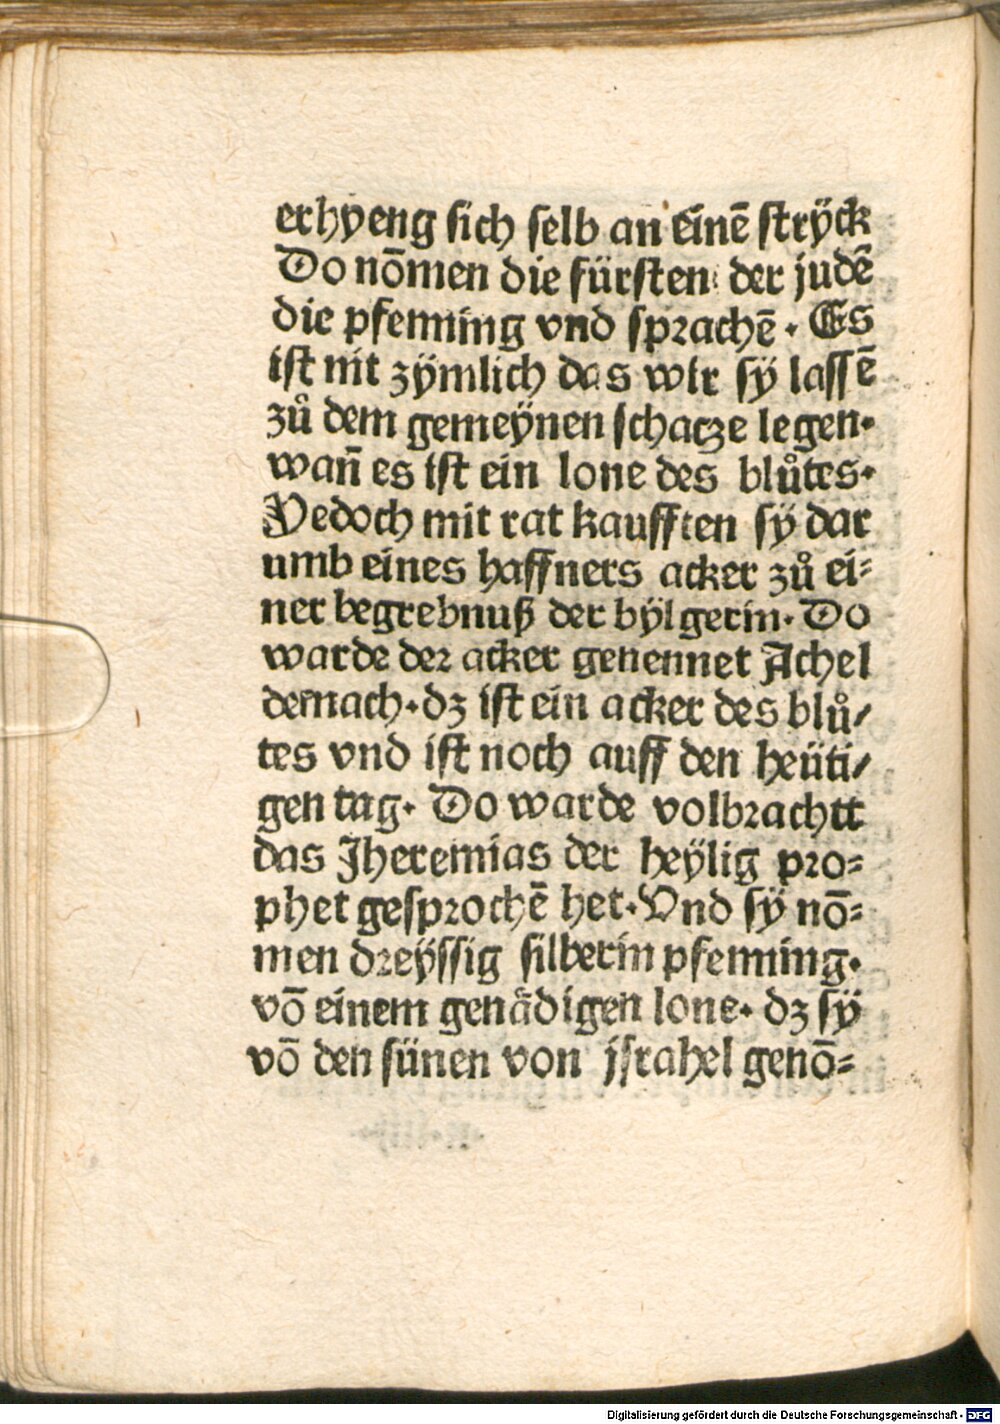 erhyeng sich selb an einē strÿck
Do nōmen die fürsten der judē
die pfenning vnd sprachē. Es
ist nit zÿmlich das wir sÿ lassē
zů dem gemeÿnen schatze legen.
wañ es ist ein lone des blůtes.
Yedoch mit rat kaufften sÿ dar
umb eines haffners acker zů ei⸗
ner begrebnuß der bÿlgerin. Do
warde der acker genennet Achel
demach. dz ist ein acker des blů/
tes vnd ist noch auff den heüti/
gen tag. Do warde volbrachtt
das Jheremias der heÿlig pro⸗
phet gesprochē het. Vnd sÿ nō⸗
men dreÿssig silberin pfenning.
vō einem genädigen lone. dz sÿ
vō den sünen von jsrahel genō⸗
Digitalisierung gefördert durch die Deutsche Forschungsgemeinschaft - DFG